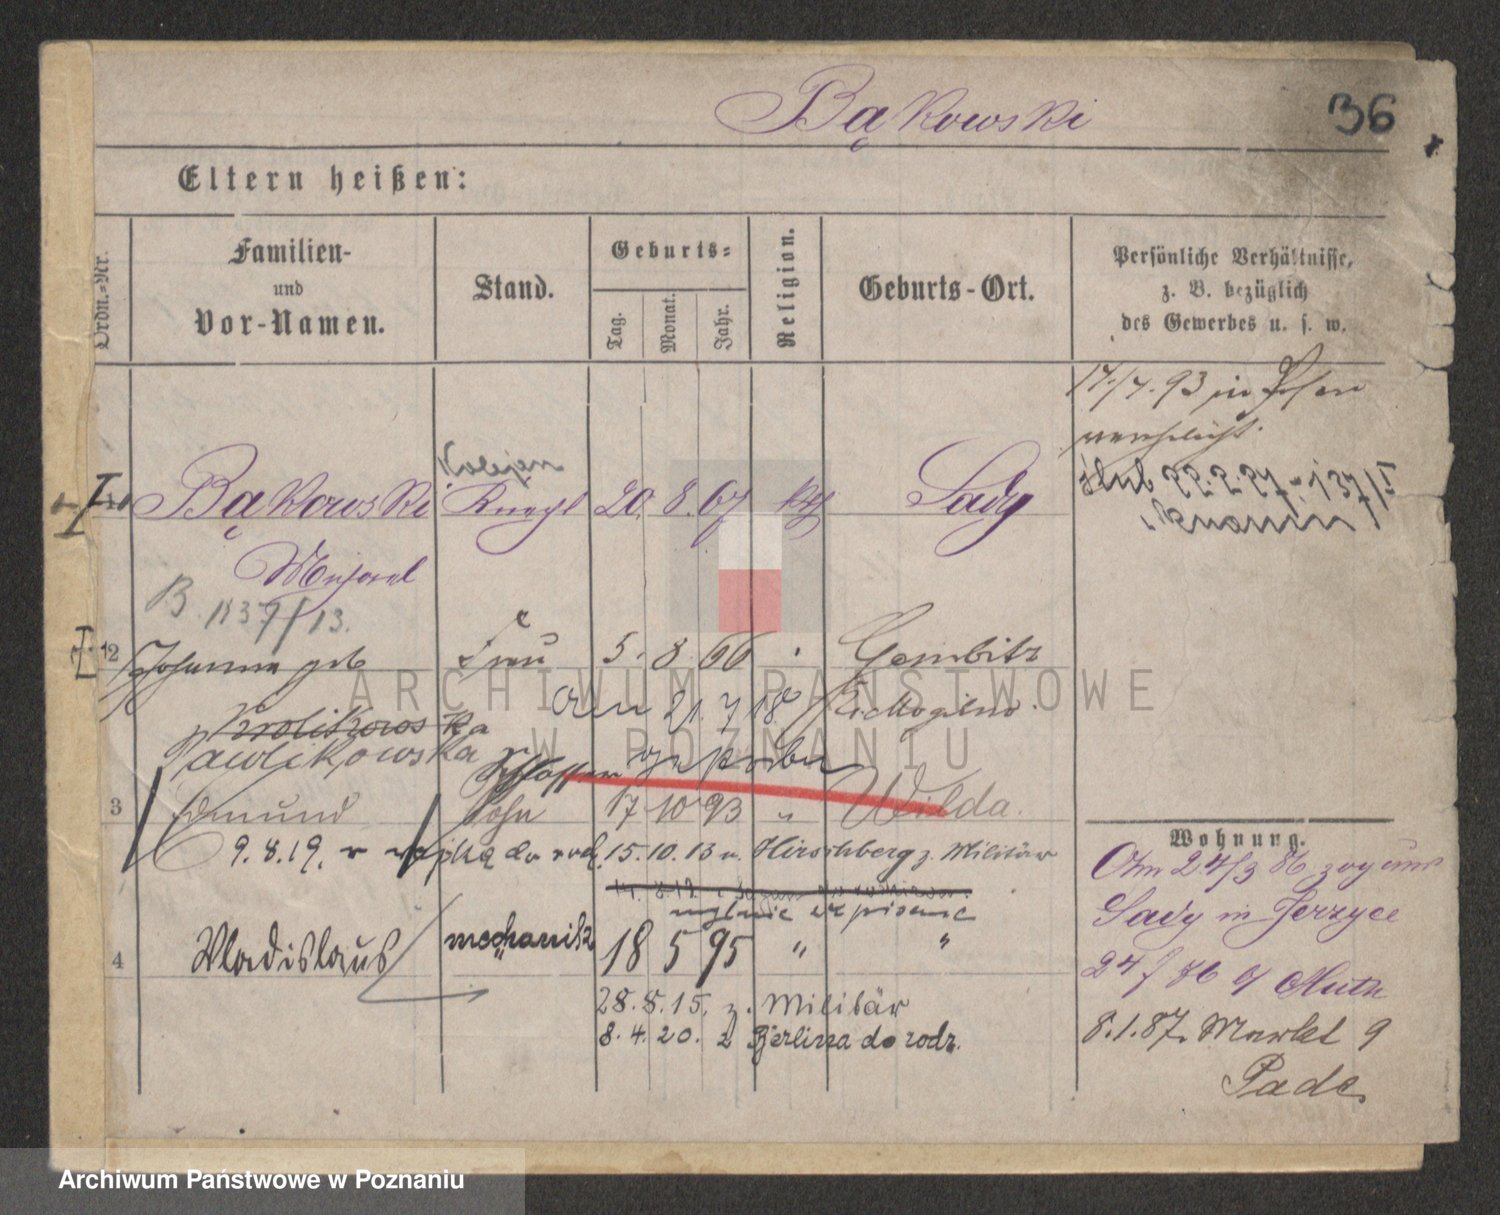 Bąkowski 36
Eltern heißen:
Ordn.-Nr.
Familien-
und
Vor-Namen.
Stand.
Geburts-
Tag.
Monat.
Jahr.
Religion.
Geburts-Ort.
Persönliche Verhältnisse,
z. B. bezüglich
des Gewerbes u. s. w.
17./7.93 in Posen
verehelicht.
Kolejen
Bąkowski Knecht 20. 8. 67 kth Sady
ślub 22.2.27 - 137/I
B. 1137/13.
2 Johanna geb Frau 5. 8. 66 Gembitz
am 21. 7 18 Mogilno
Krolikowska
Pawlikowska Schlosser gestorben
3 Edmund Sohn 17 10 93 " Wilda.
9.8.19. z wojska do rodz. 15.10.13 n. Hirschberg z. Militär
mylnie wpisane
4 Wladislaus mechanik 18 5 95 " "
28.8.15. z. Militär
8.4.20. z Berlina do rodz.
Wohnung.
Am 24/3 86 zog aus
Sady in Jerzyce
8.1.87. Markt 9
Pade
ARCHIWUM PAŃSTWOWE
W POZNANIU
Archiwum Państwowe w Poznaniu